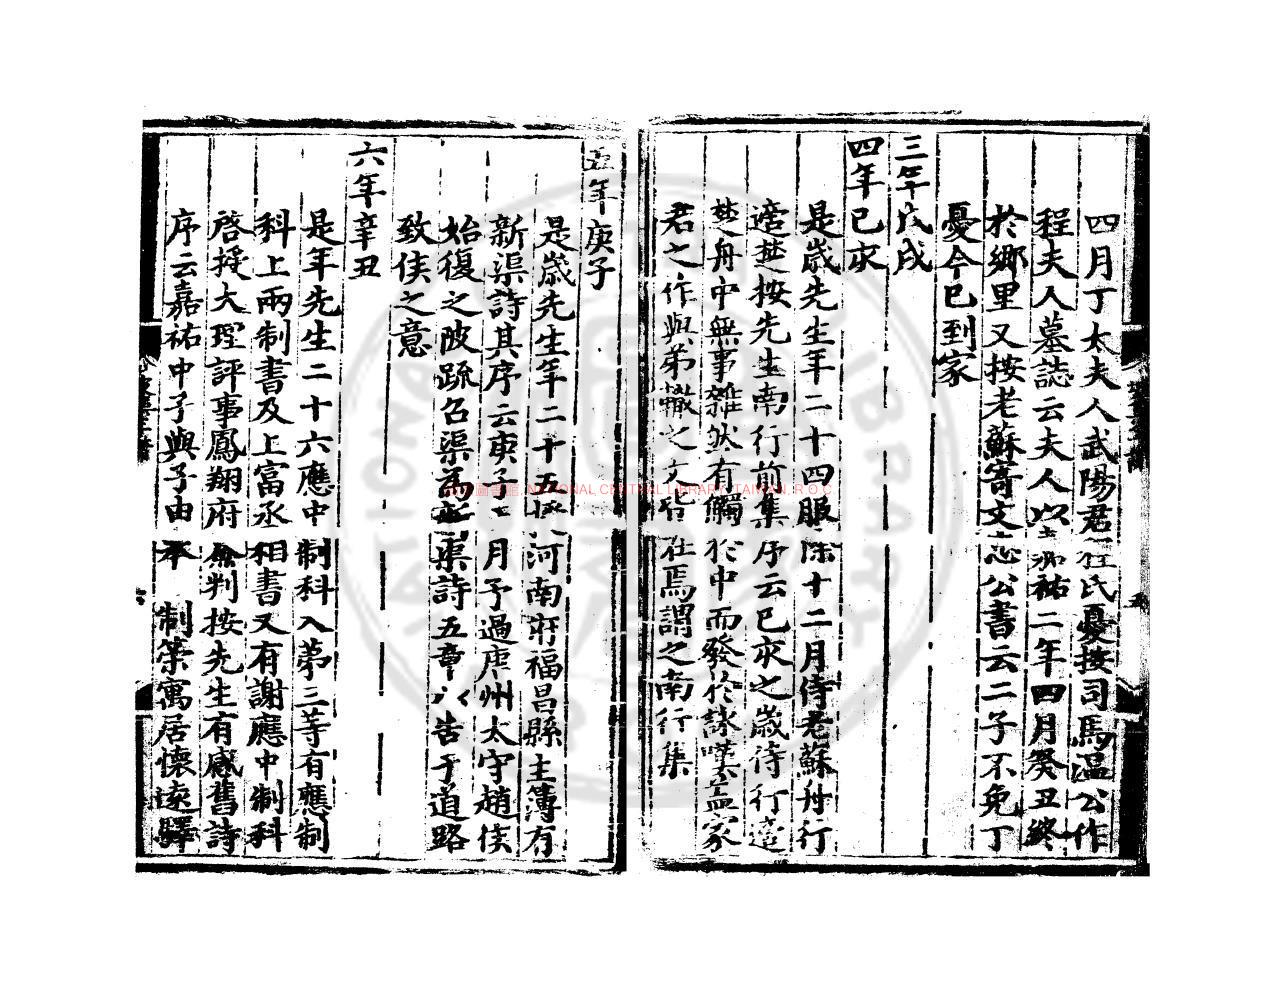 四月丁太夫人武陽君程氏憂按司馬溫公作
程夫人墓誌云夫人以嘉祐二年四月癸丑終
於鄉里又按老蘇寄文忠公書云二子不免丁
憂今已到家
三年戊戌
四年己亥
是歲先生年二十四服除十二月侍老蘇舟行
適楚按先生南行前集序云己亥之歲侍行適
楚舟中無事雜然有觸於中而發於詠嘆蓋家
君之作與弟轍之文皆在焉謂之南行集
五年庚子
是歲先生年二十五授河南府福昌縣主簿有
新渠詩其序云庚子正月予過唐州太守趙侯
始復之陂疏召渠為新渠詩五章以告于道路
致侯之意
六年辛丑
是年先生二十六應中制科入第三等有應制
科上兩制書及上富丞相書又有謝應中制科
啓授大理評事鳳翔府僉判按先生有感舊詩
序云嘉祐中予與子由 制策寓居懷遠驛
國家圖書館 NATIONAL CENTRAL LIBRARY, TAIWAN, R.O.C